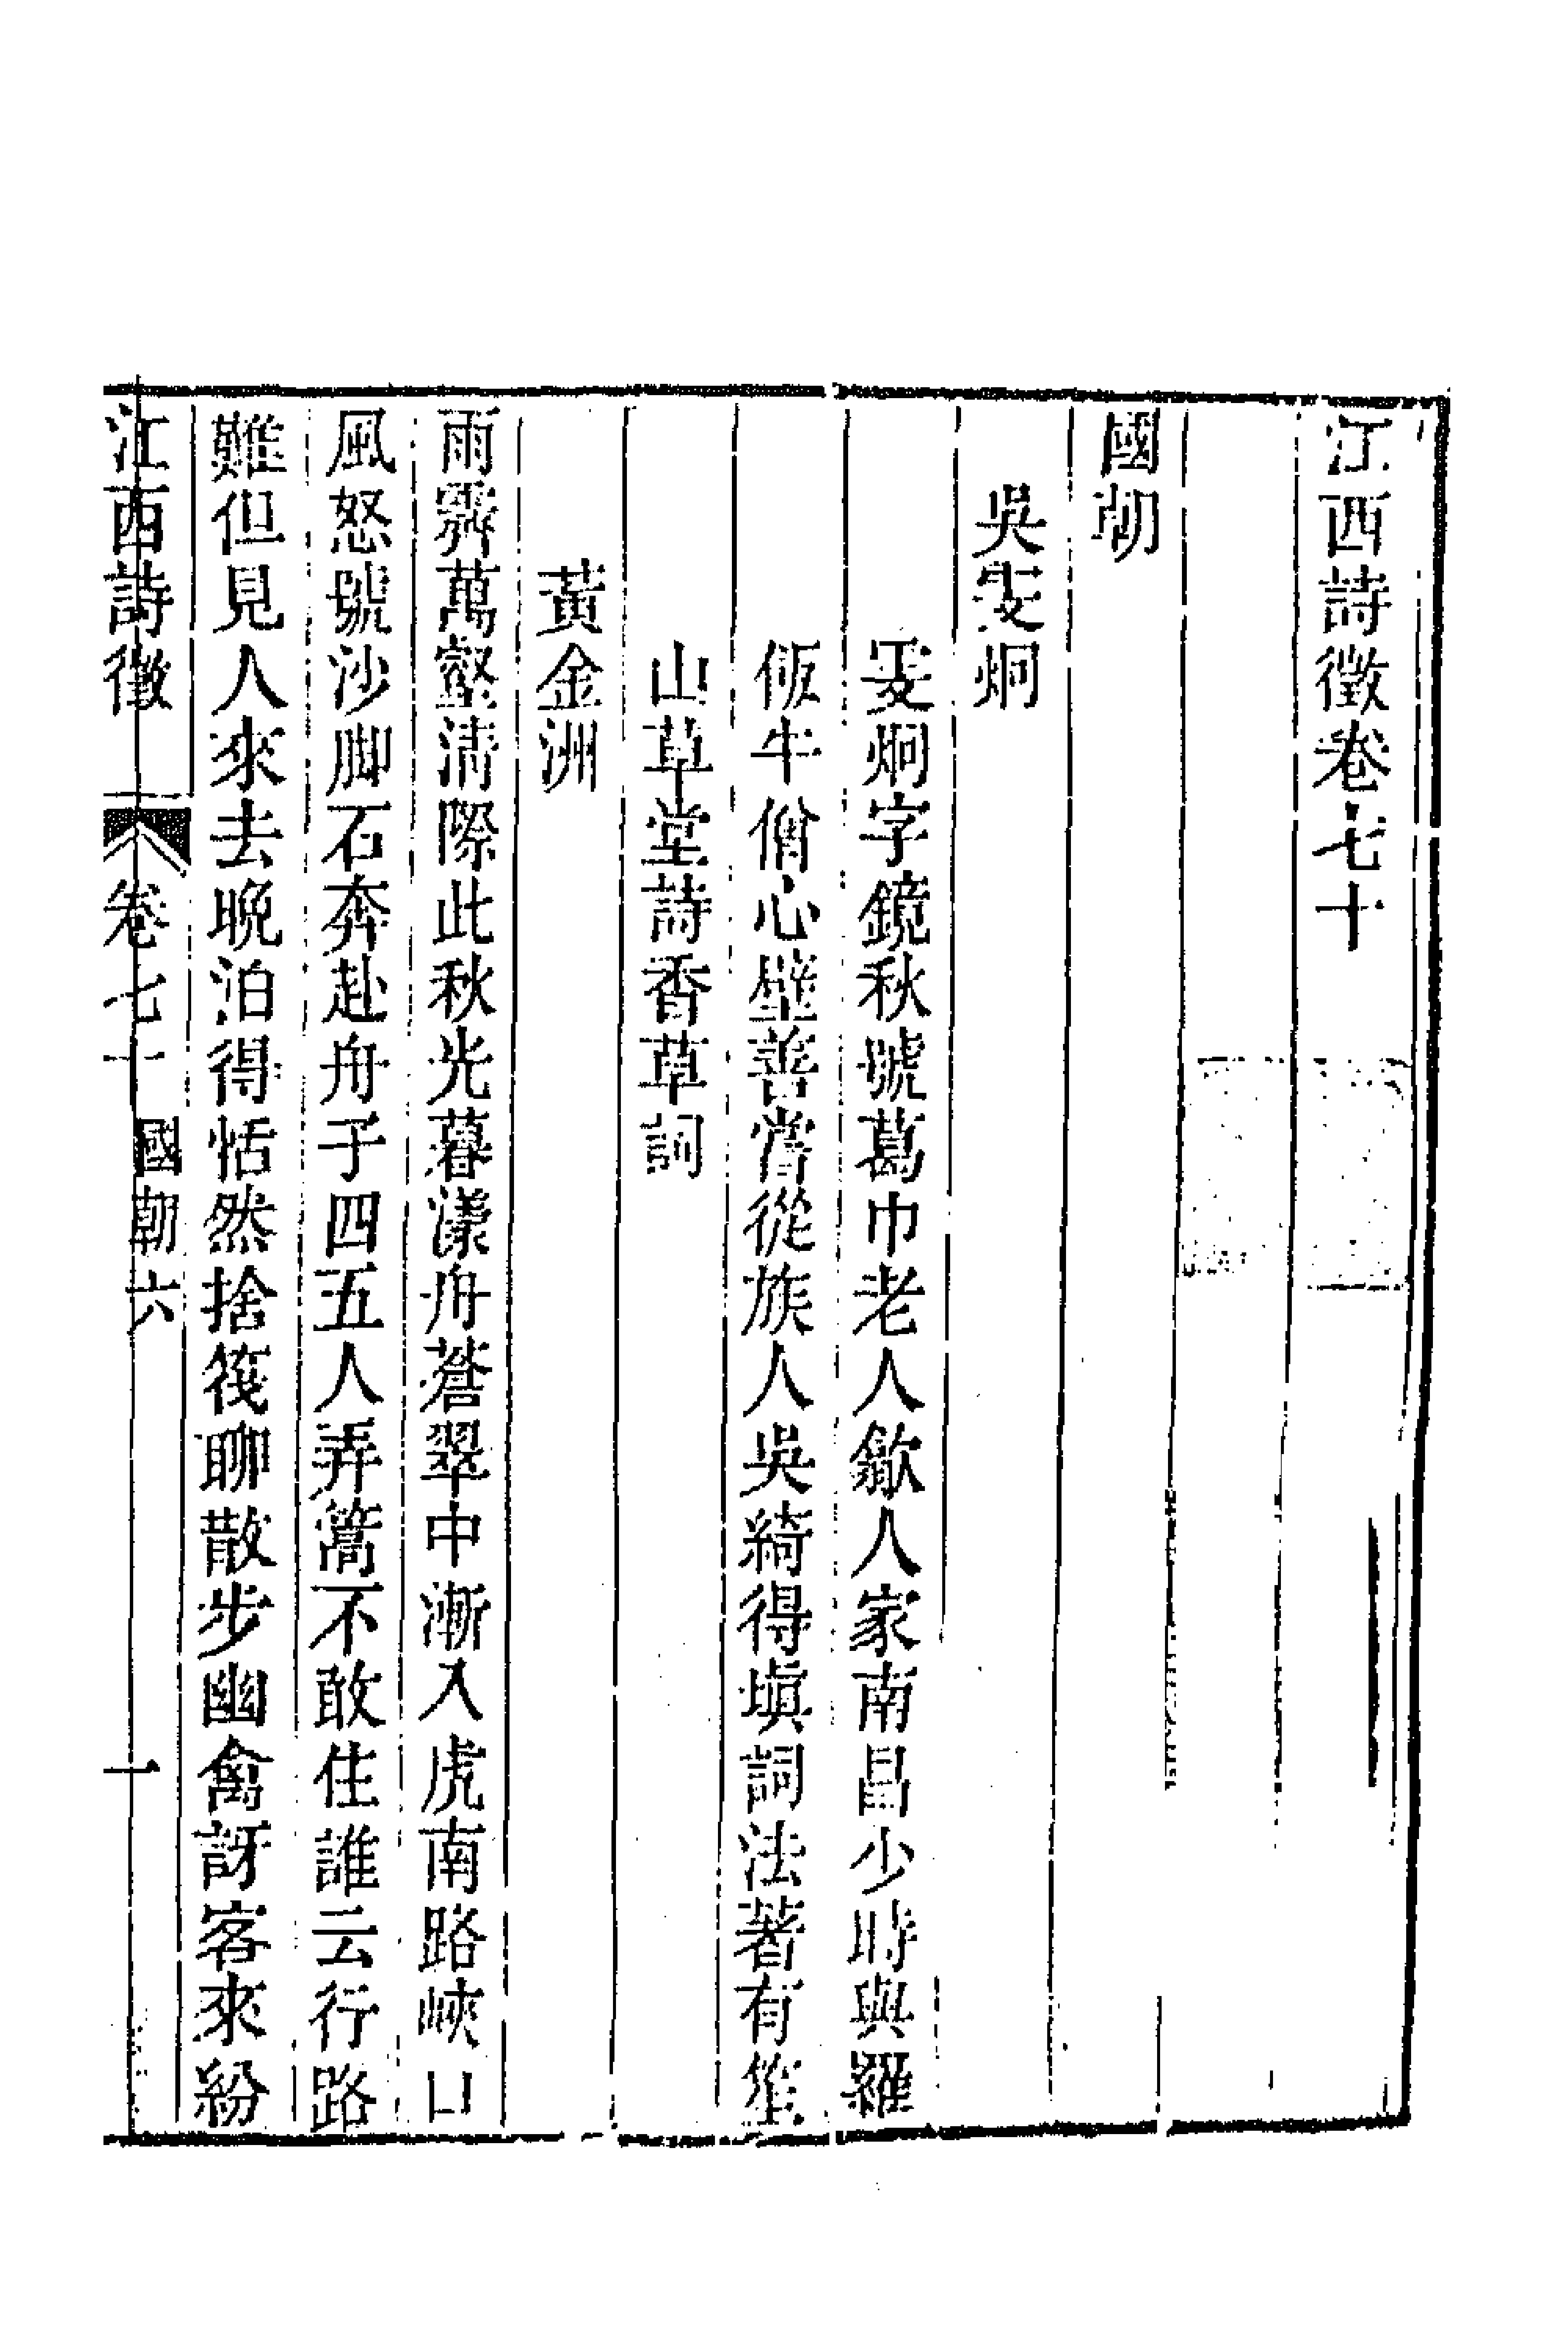 江西詩徵卷七十
國朝
吳雯炯
雯炯字鏡秋號葛巾老人歙人家南昌少時與羅
飯牛僧心壁善嘗從族人吳綺得塡詞法著有
山草堂詩香草詞
黃金洲
雨霽萬壑淸際此秋光暮漾舟蒼翠中漸入虎南路峽口
風怒號沙脚石奔赴舟子四五人弄篙不敢住誰云行路
難但見人來去晚泊得恬然捨筏聊散步幽禽訝客來紛
江西詩徵 卷七十 國朝六 一